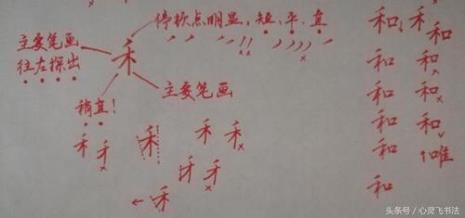 停顿点明显,短、平、直
主要笔画
往左探出
禾
主要笔画
稍直!
禾 禾 禾 禾 禾
禾 禾
←禾
和 禾 和
和 和
和 和
和 和
唯
和
头条号 / 心灵飞书法